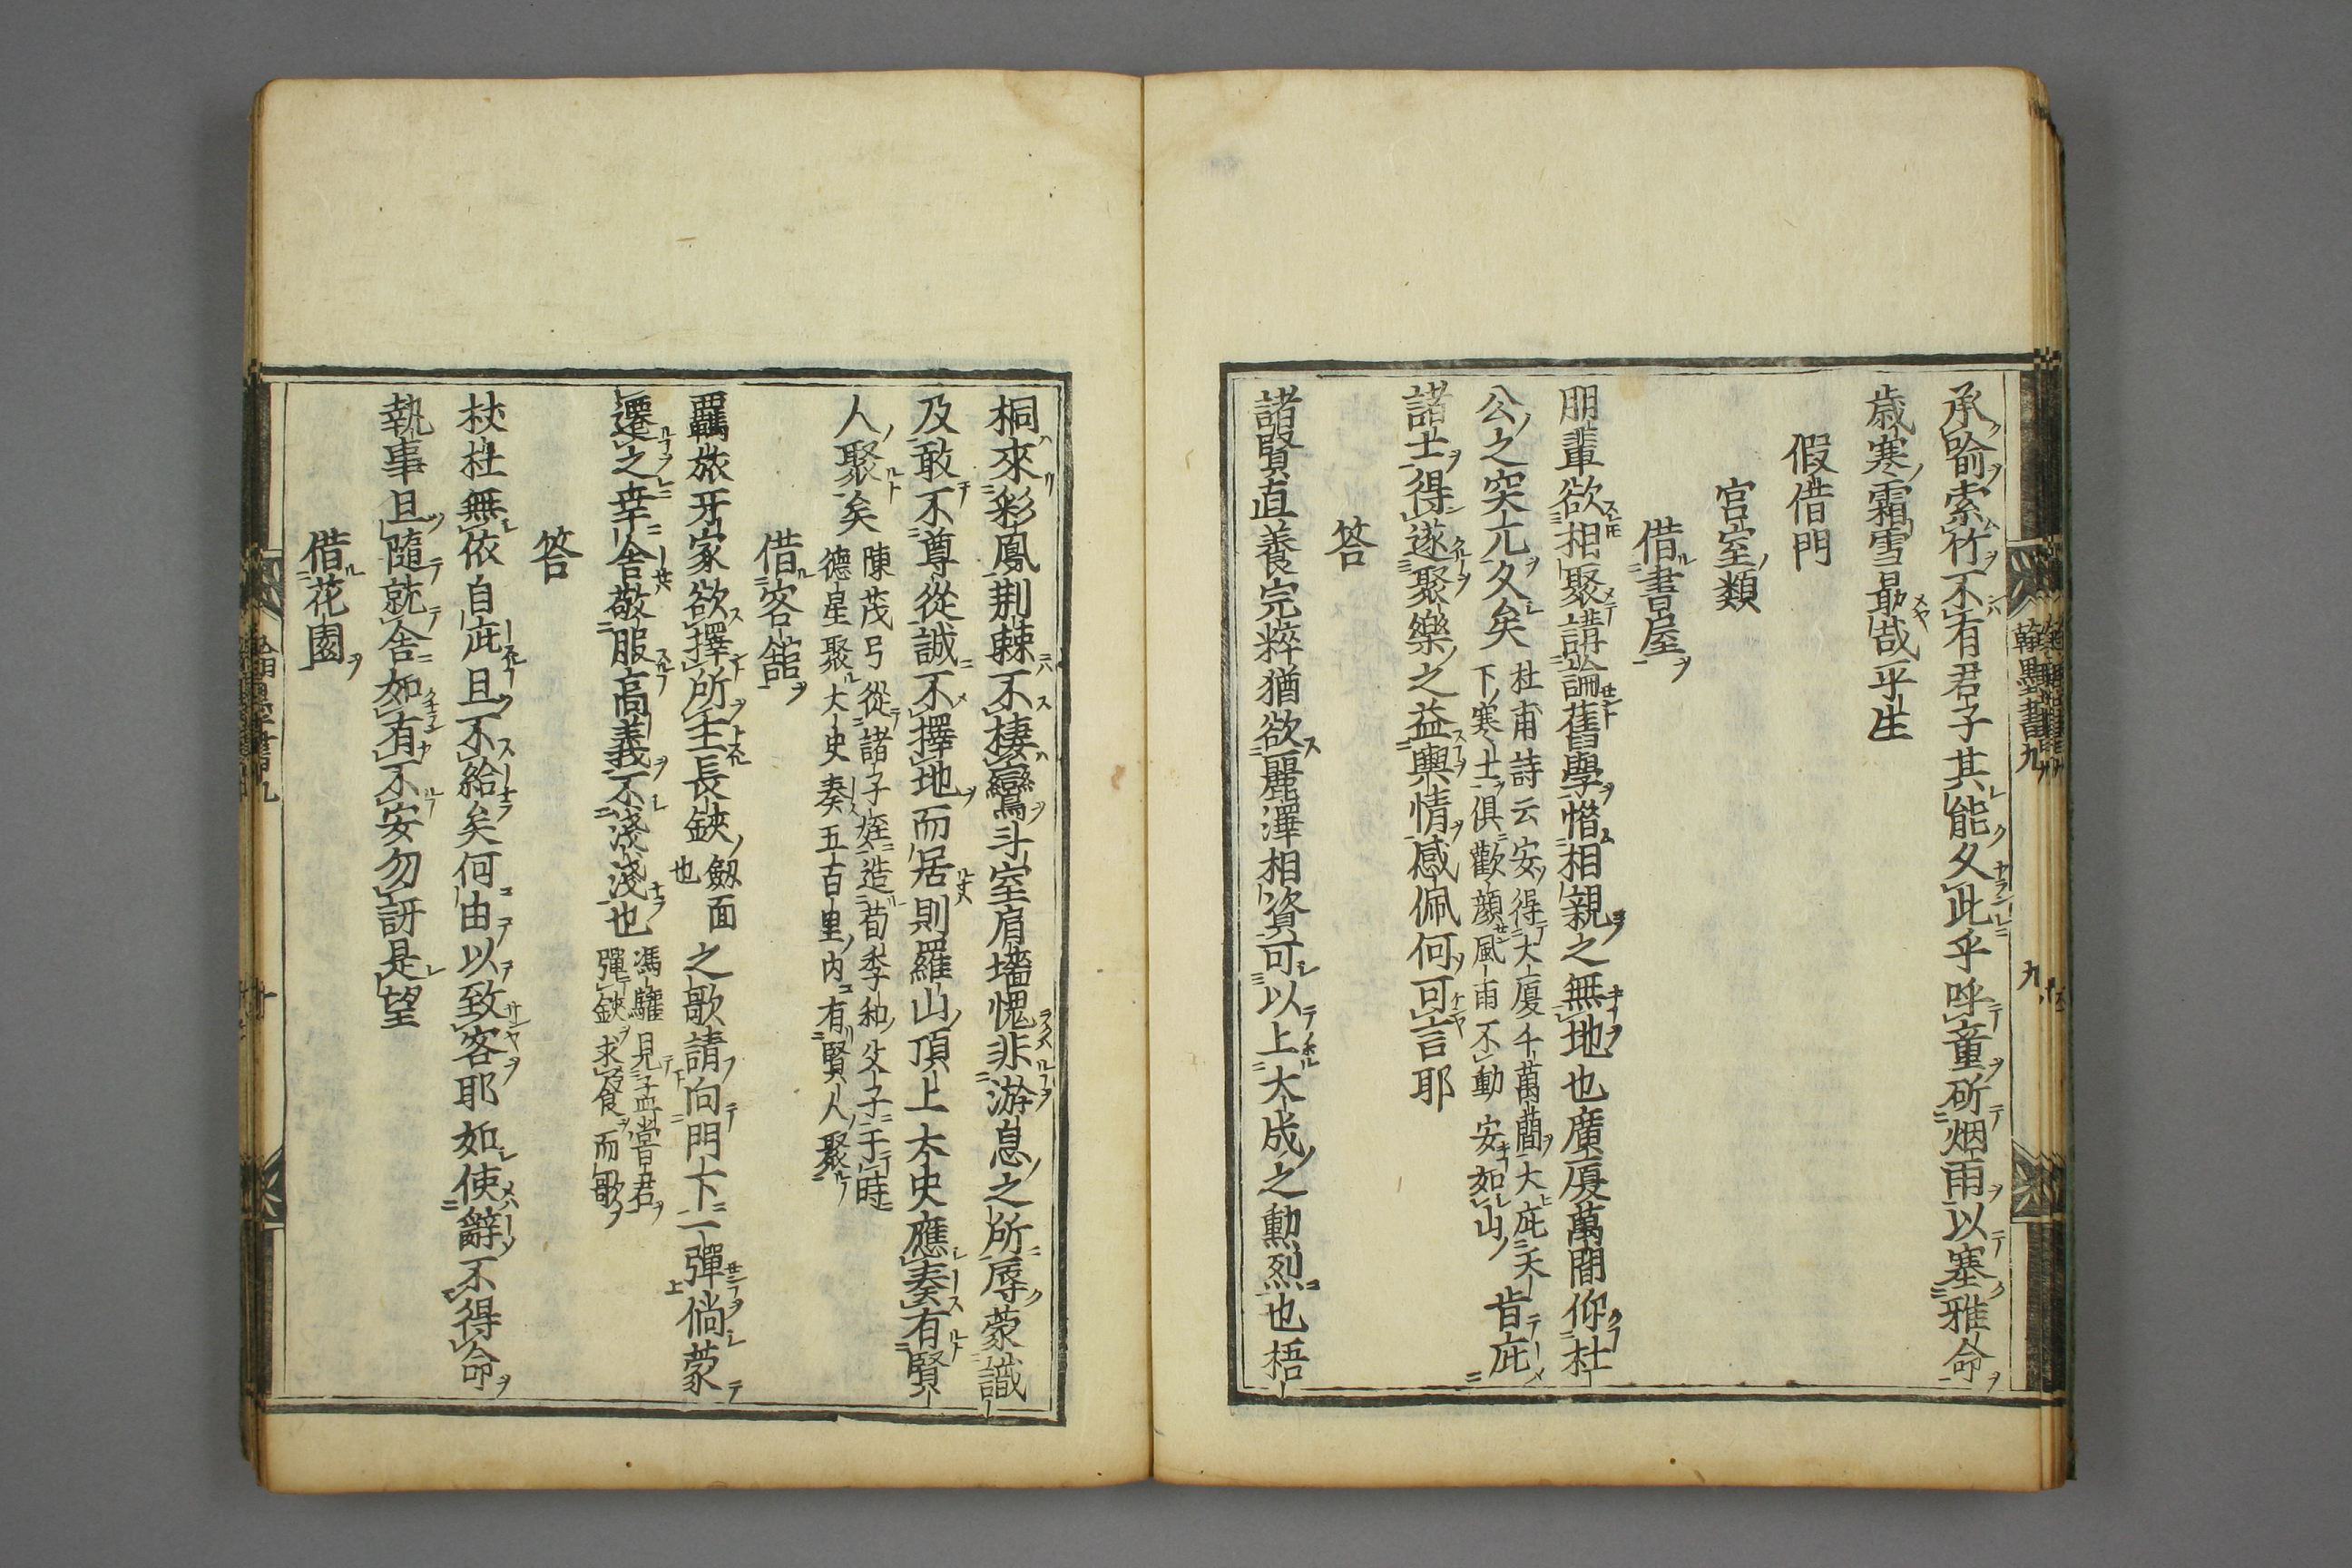 承喻索竹不有君子其能久此乎呼童斫烟雨以塞雅命
歳寒霜雪最哉乎生
假借門
宮室類
借書屋
朋輩欲相聚講論舊學惜相親之無地也廣厦萬間仰杜
公之突亢久矣
杜甫詩云安得大厦千萬間大庇天
下寒士俱歡顔風雨不動安如山
肯庇
諸士得遂聚樂之益輿情感佩何可言耶
答
諸賢直養完粹猶欲麗澤相資可以上大成之勲烈也梧
桐來彩鳳荆棘不棲鸞斗室肩墻愧非游息之所辱蒙識
及敢不尊從誠不擇地而居則羅山頂上太史應奏有賢
人聚矣
陳茂弓從諸子姪造荀季和父子于時
德星聚大史奏五百里内有賢人聚
借客舘
羈旅牙家欲擇所主長鋏
劔面
也
之歌請向門下一彈倘蒙
遷之幸舍敬服高義不淺淺也
馮驩見孟嘗君
彈鋏求食而歌
答
杕杜無依自庇且不給矣何由以致客耶如使辭不得命
執事且隨就舍如有不安勿訝是望
借花園
翰墨書九
九
十